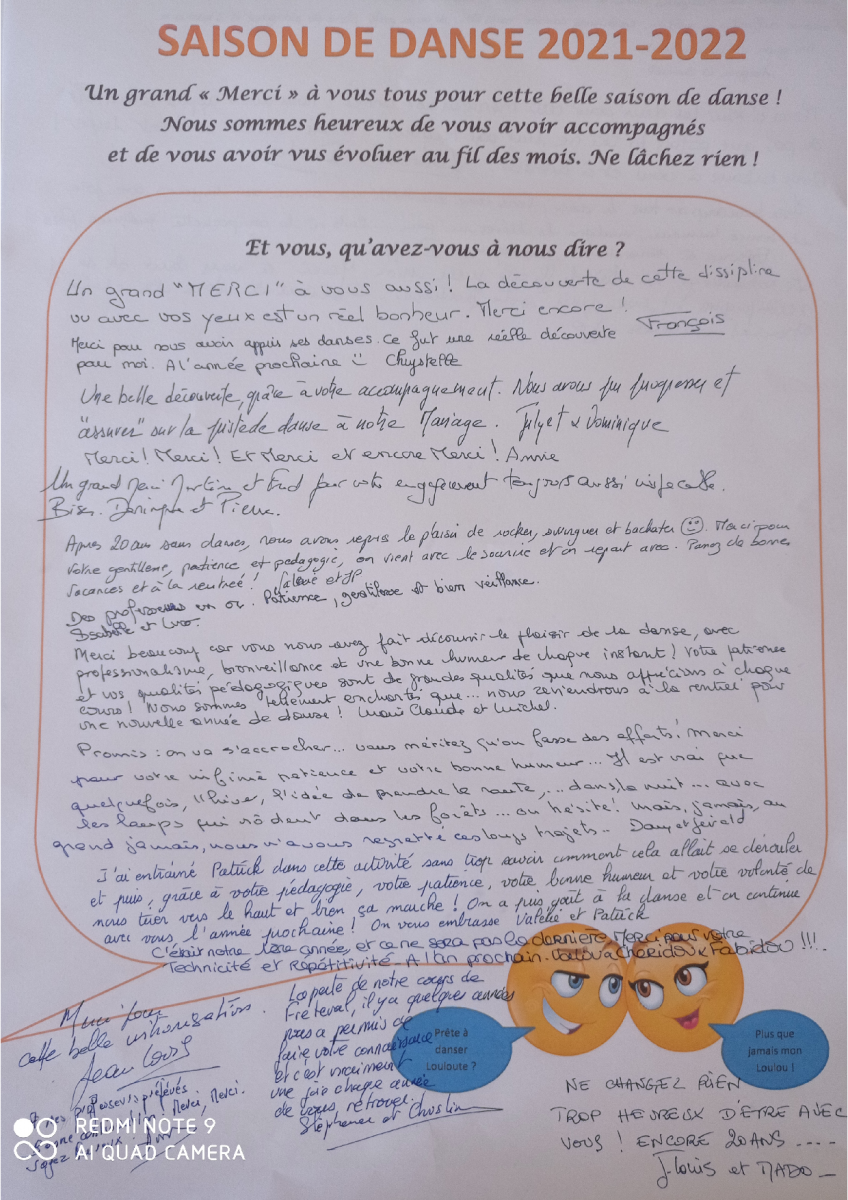 SAISON DE DANSE 2021-2022
Un grand « Merci » à vous tous pour cette belle saison de danse !
Nous sommes heureux de vous avoir accompagnés
et de vous avoir vus évoluer au fil des mois. Ne lâchez rien !
Et vous, qu'avez-vous à nous dire ?
Un grand "MERCI" à vous aussi ! La découverte de cette dissipline
vu avec vos yeux est un réel bonheur. Merci encore !
François
Merci pour nous avoir appris ses danses. Ce fut une réelle découverte
pour moi. A l'année prochaine Chrystelle
Une belle découverte, grâce à votre accompagnement. Nous avons pu progresser et
"assurer" sur la piste de danse à notre Mariage. Julyet & Dominique
Merci ! Merci ! Et Merci et encore Merci ! Annie
Un grand Merci Martine et Fred pour votre engagement toujours aussi impeccable.
Bises. Dominique et Pierre.
Après 20 ans sans danses, nous avons repris le plaisir de rocker, swinguer et bachater. Merci pour
votre gentillesse, patience et pédagogie, on vient avec le sourire et on repart avec. Passez de bonnes
vacances et à la rentrée ! et JP
Des professeurs en or. Patience, gentillesse et bien veillance.
Isabelle et
Merci beaucoup car vous nous avez fait découvrir le plaisir de la danse, avec
professionnalisme, bienveillance et une bonne humeur de chaque instant ! Votre patience
et vos qualités pédagogiques sont de grandes qualités que nous apprécions à chaque
cours ! Nous sommes tellement enchantés que... nous reviendrons à la rentrée pour
une nouvelle année de danse ! Marie Claude et Michel.
Promis : on va s'accrocher... vous méritez qu'on fasse des efforts ! Merci
pour votre infinie patience et votre bonne humeur... Il est vrai que
quelquefois, l'hiver, l'idée de prendre la route,... dans la nuit... avec
les loups qui rôdent dans les forêts... on hésite ! Mais, jamais, au
grand jamais, nous n'avons regretté ces longs trajets.. Dany et Gérald
J'ai entraîné Patrick dans cette activité sans trop savoir comment cela allait se dérouler
et puis, grâce à votre pédagogie, votre patience, votre bonne humeur et votre volonté de
nous tirer vers le haut et bien ça marche ! On a pris goût à la danse et on continue
avec vous l'année prochaine ! On vous embrasse Valérie et Patrick
C'était notre 1ère année, et ce ne sera pas la dernière. Merci pour votre
Technicité et Répétitivité. A l'an prochain. & Fabidou !!!
Merci pour
cette belle
Jean Louis
La porte de notre cours de
Fréteval, il y a quelques années
nous a permis de
faire votre connaissance
et c'est vraiment
une joie chaque année
de vous retrouver.
Stéphane et
professeurs préférés
Merci, Merci.
Prête à
danser
Louloute ?
Plus que
jamais mon
Loulou !
NE CHANGEZ RIEN
TROP HEUREUX D'ÊTRE AVEC
VOUS ! ENCORE 20 ANS ....
J-Louis et MADO
REDMI NOTE 9
AI QUAD CAMERA